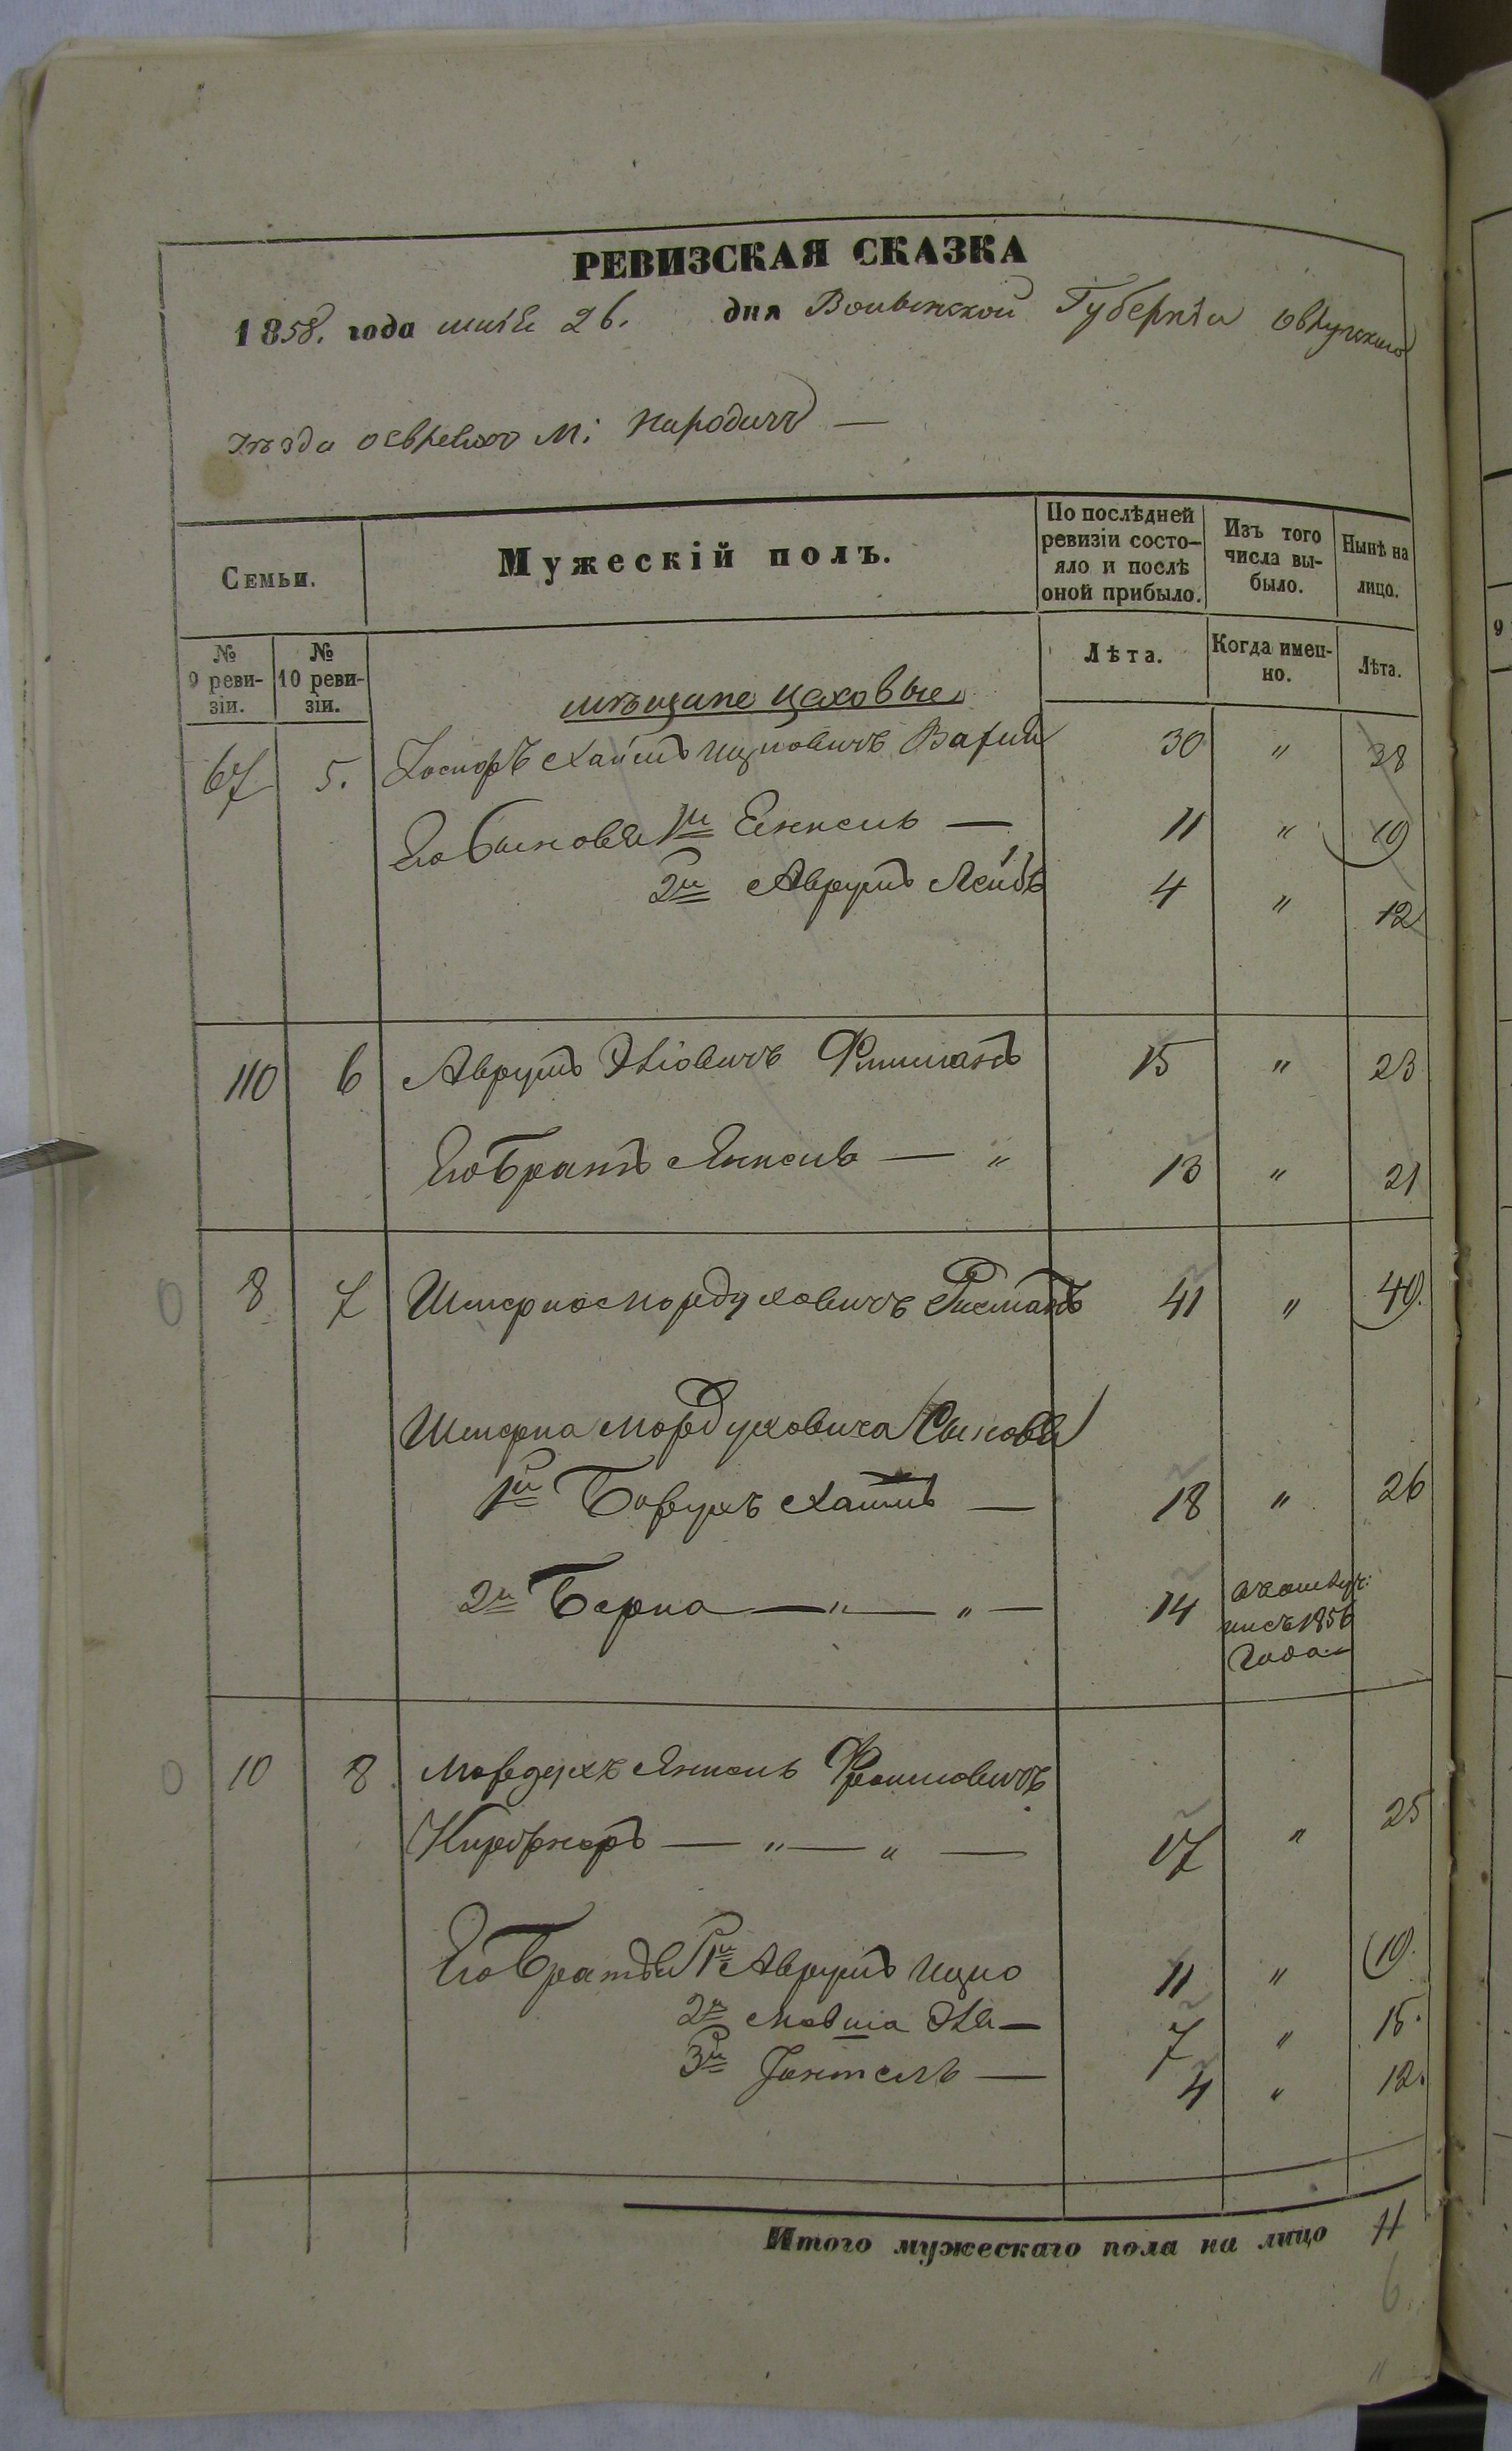 РЕВИЗСКАЯ СКАЗКА
1858. года маія 26. дня Волынской Губерніи Овручскаго
уѣзда о евреяхъ М: Народичъ —
Семьи. Мужескій полъ. По послѣдней ревизіи состо-яло и послѣ оной прибыло. Изъ того числа вы-было. Нынѣ на лицо.
№ 9 реви-зіи. № 10 реви-зіи. Лѣта. Когда имен-но. Лѣта.
мѣщане цеховые
67 5. Хаимъ Ицковичъ 30 " 38
Его Сыновья 1й Янкель — 11 " 19
2й Аврумъ Лейбъ 4 " 12
110 6 Аврумъ Эліовичъ 15 " 23
Его Братъ Янкель — " 13 " 21
8 7 Мордуховичъ 41 " 49.
Мордуховича Сыновья
1й Борухъ Хаимъ — 18 " 26
2й Берка — " — " — 14 1856 года
10 8 Мордухъ Янкель
— " — " — 17 " 25
Его Братья 1й Аврумъ Ицко 11 " 19.
2й Мовша Эля — 7 " 15.
3й — 4 " 12.
Итого мужескаго пола на лицо 11
6